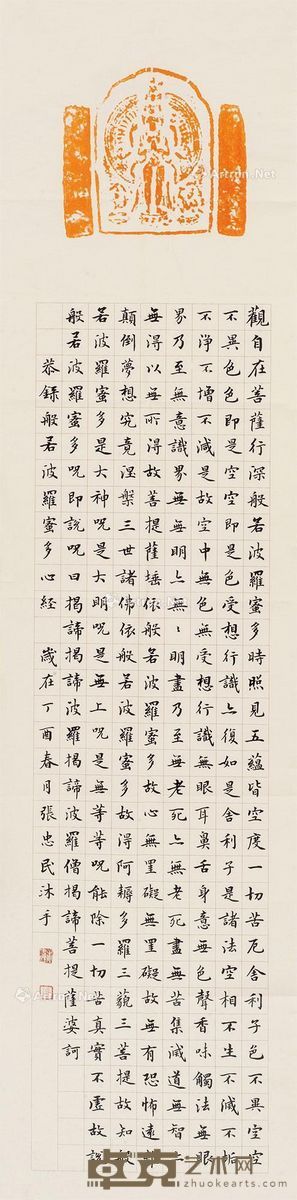 觀自在菩薩行深般若波羅蜜多時照見五蘊皆空度一切苦厄舍利子色不異空空
不異色色即是空空即是色受想行識亦復如是舍利子是諸法空相不生不滅不垢
不淨不增不減是故空中無色無受想行識無眼耳鼻舌身意無色聲香味觸法無眼
界乃至無意識界無無明亦無〻明盡乃至無老死亦無老死盡無苦集滅道無智亦
無得以無所得故菩提薩埵依般若波羅蜜多故心無罣礙無罣礙故無有恐怖遠離
顛倒夢想究竟涅槃三世諸佛依般若波羅蜜多故得阿耨多羅三藐三菩提故知般
若波羅蜜多是大神呪是大明呪是無上呪是無等等呪能除一切苦真實不虛故說
般若波羅蜜多呪即說呪曰揭諦揭諦波羅揭諦波羅僧揭諦菩提薩婆訶
恭録般若波羅蜜多心經 歲在丁酉春月張忠民沐手
卓克艺术网
zhuokearts.com